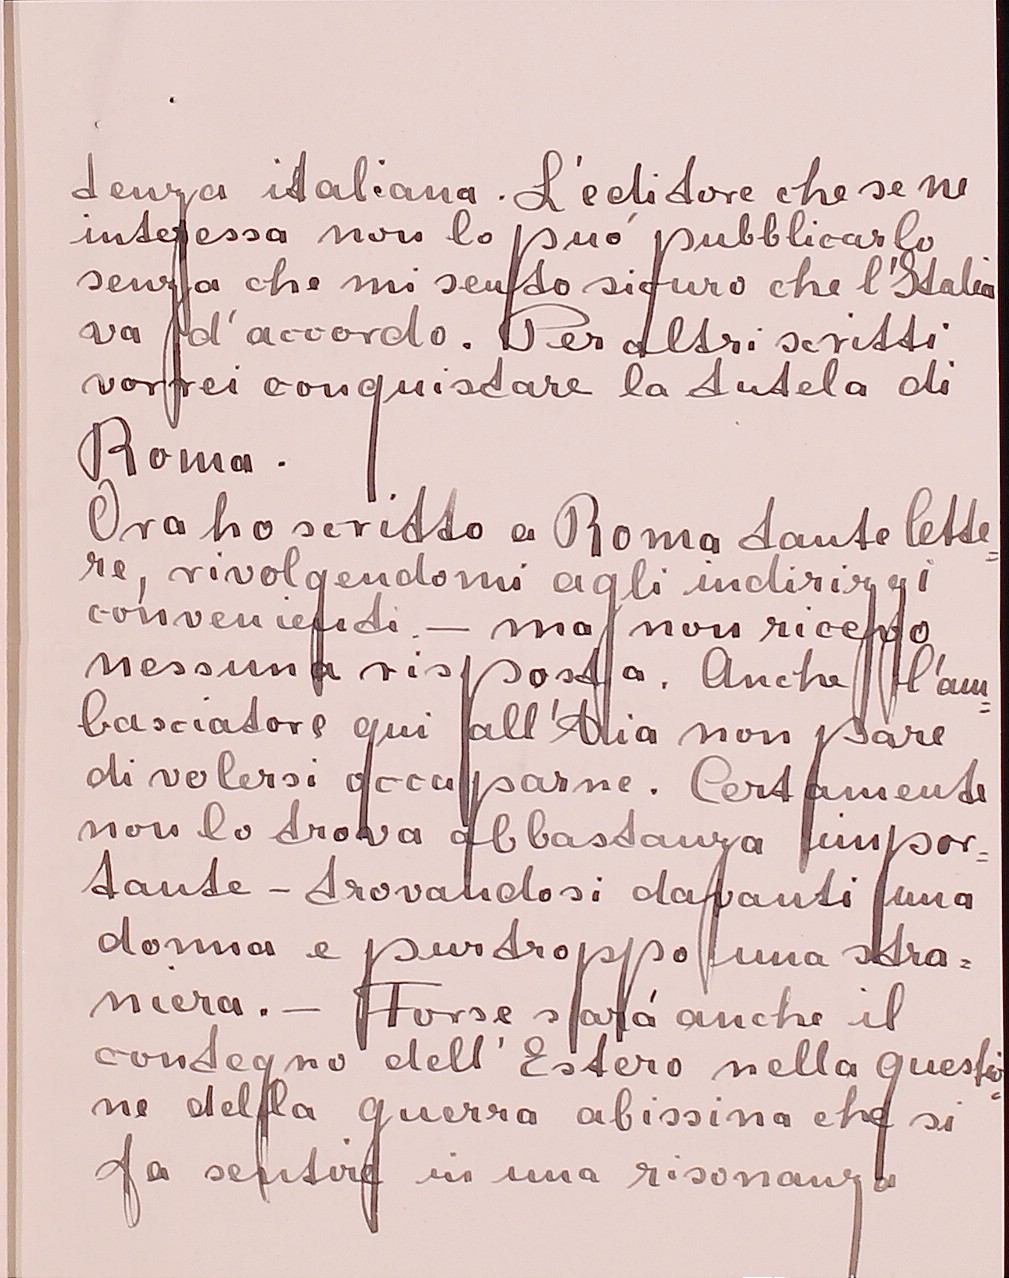 denza italiana. L'editore che se ne
interessa non lo può pubblicarlo
senza che mi sento sicuro che l'Italia
va d'accordo. Per altri scritti
vorrei conquistare la tutela di
Roma.
Ora ho scritto a Roma tante lette=
re, rivolgendomi agli indirizzi
convenienti. — ma non ricevo
nessuna risposta. Anche l'am=
basciatore qui all'Aia non pare
di volersi occuparne. Certamente
non lo trova abbastanza impor=
tante – trovandosi davanti una
donna e purtroppo una stra=
niera. — Forse sarà anche il
contegno dell'Estero nella questio=
ne della guerra abissina che si
fa sentire in una risonanza